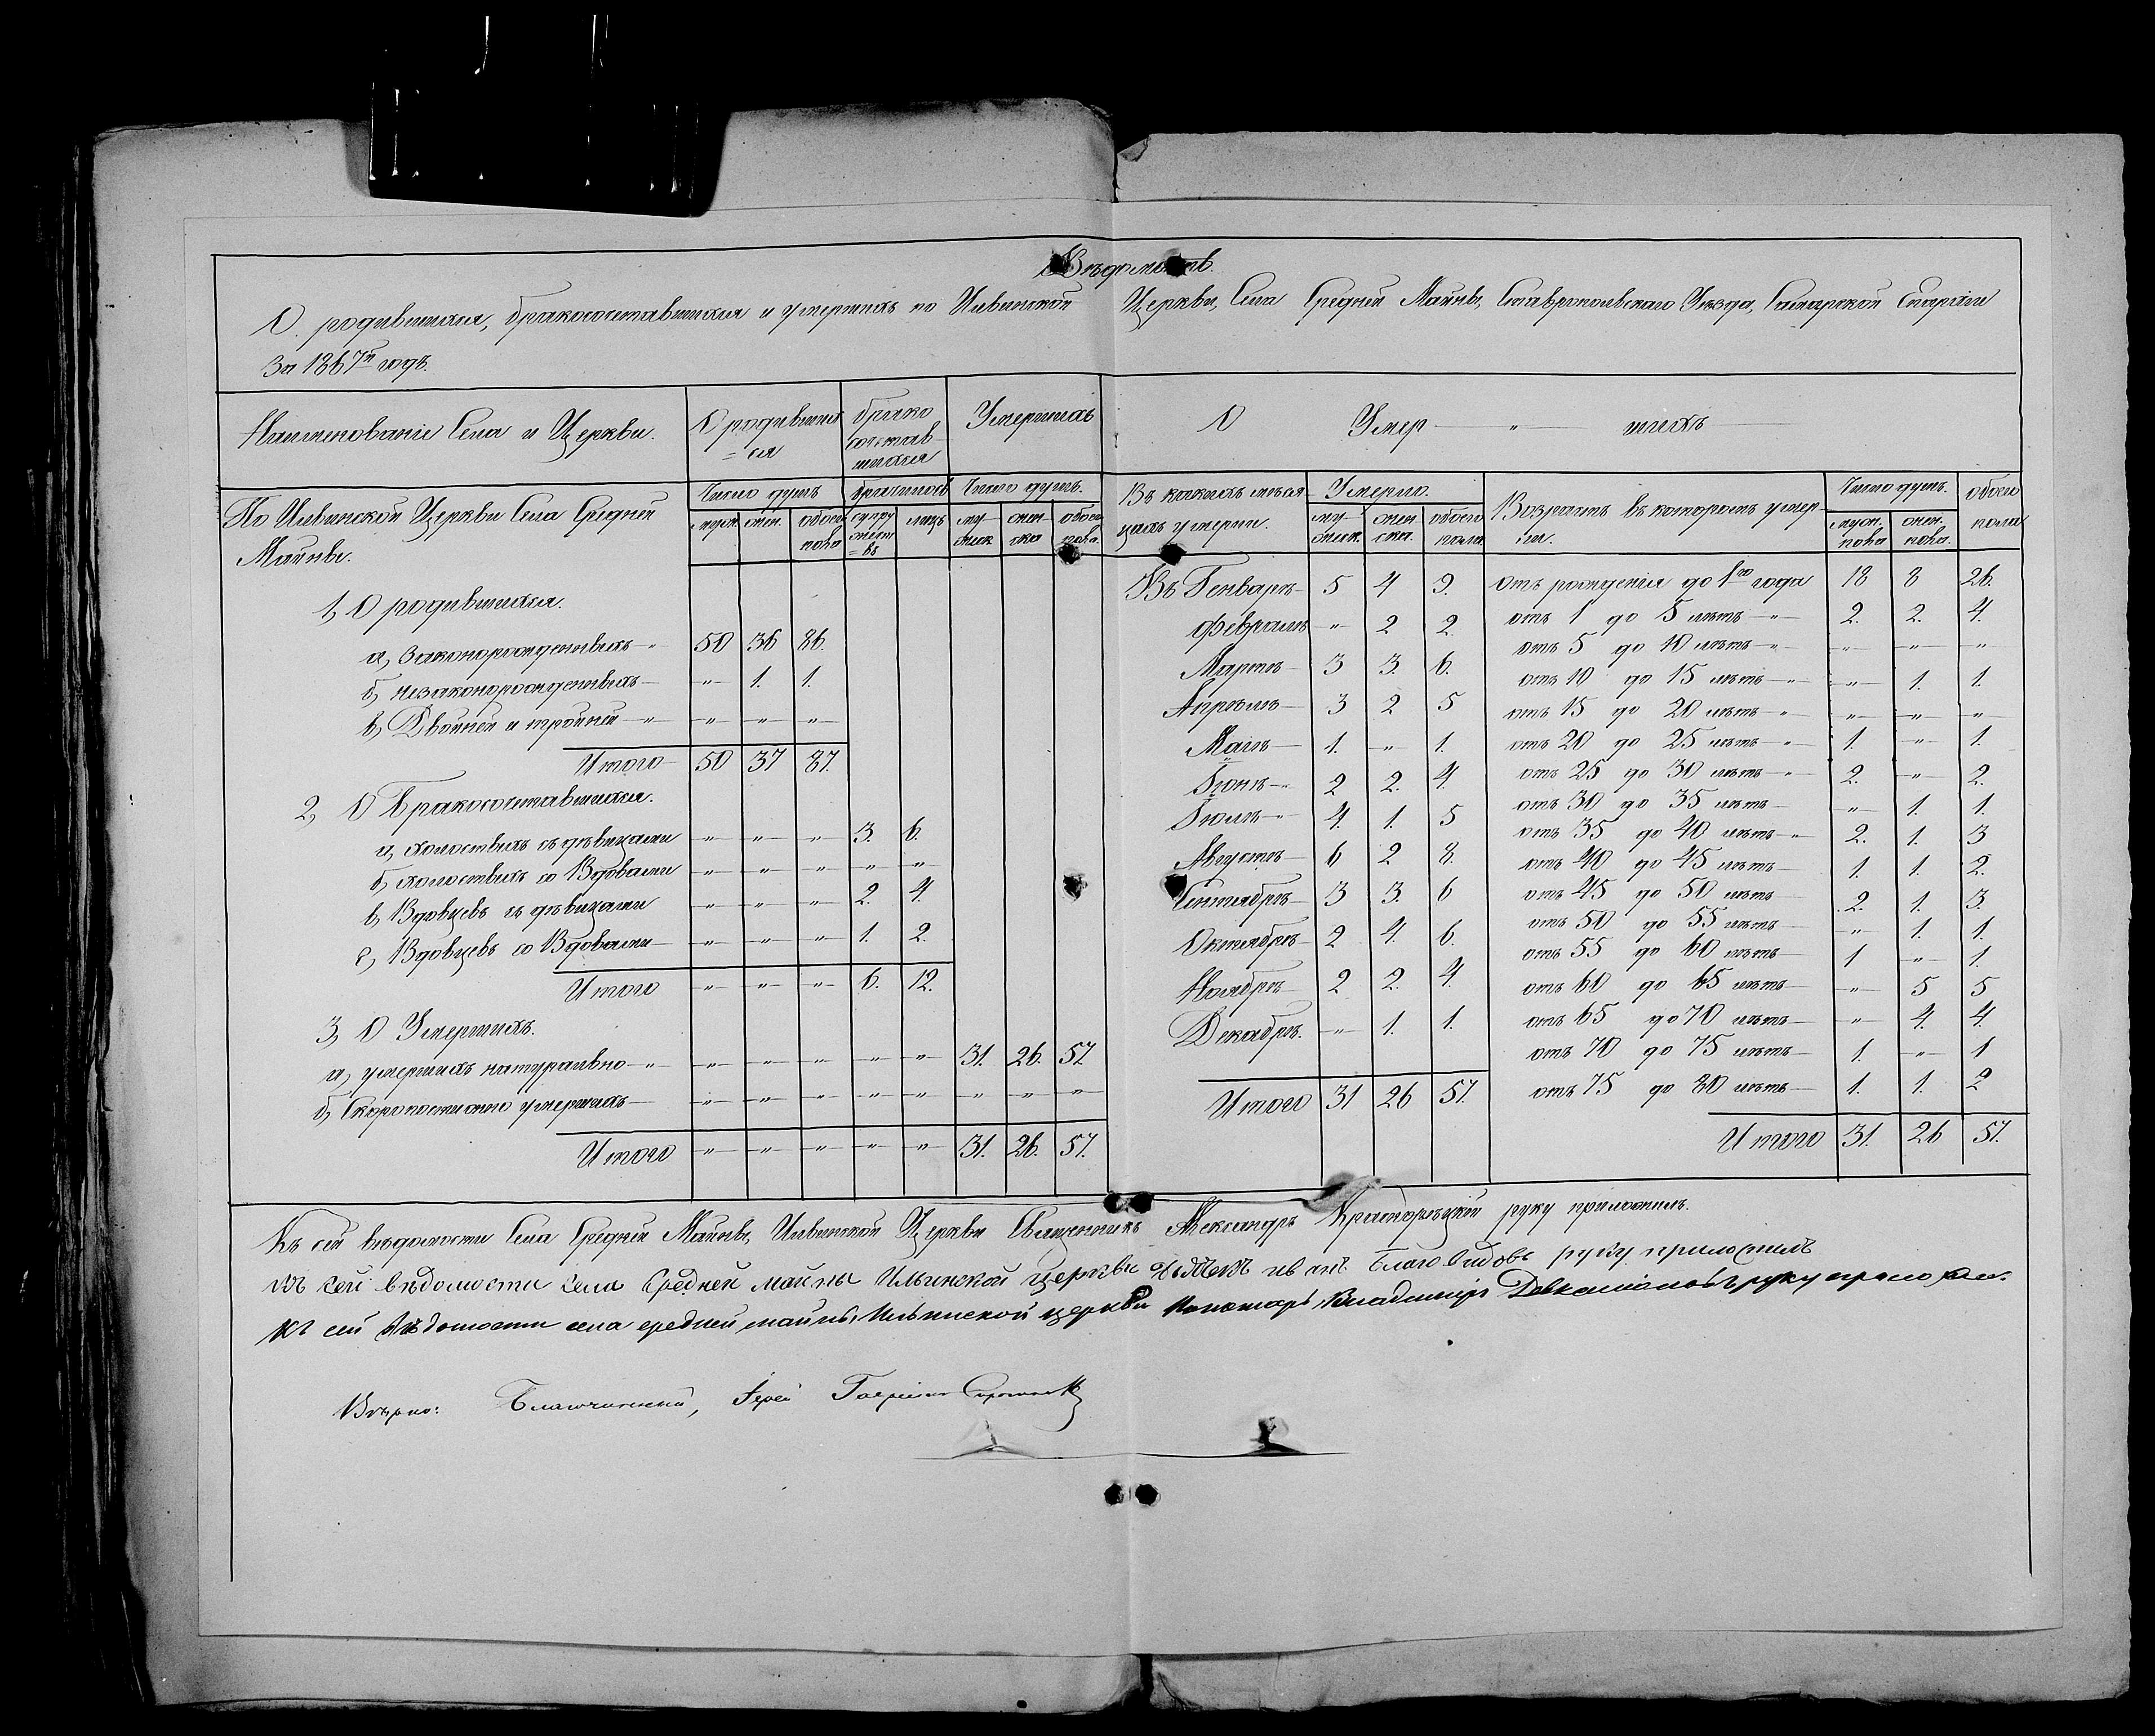 Вѣдомость
О родившихся, бракосочетавшихся и умершихъ по Ильинской Церкви, Села Средней Майны, Ставропольскаго Уѣзда, Самарской Епархіи
За 1867й годъ.
Наименованіе Села и Церкви. О родивших=ся бракосочетавшихся Умершихъ О Умер - " - шихъ
По Ильинской Церкви Села Средней Майны.
Число душъ брач Число душъ.
муж. жен. обоего пола супружествъ лицъ мужск женска обоего пола.
Въ какихъ мѣсяцахъ умерли. Умерло.
мужск. женска. обоего пола
Возрастъ въ которомъ умерли. Число душъ. обоего пола
мужс. пола женс. пола.
1, О родившихся.
а, законорожденныхъ - " 50 36 86.
б, незаконорожденныхъ - " - 1. 1.
в, Двойней и тройней - " - " - " - "
Итого 50 37 87.
2, О Бракосочетавшихся.
а, холостыхъ съ дѣвицами " " " 3. 6.
б, холостыхъ со Вдовами " " " " "
в, Вдовцевъ съ дѣвицами " " " 2. 4.
г, Вдовцевъ со Вдовами " " " 1. 2.
Итого " " " 6. 12.
3, О Умершихъ.
а, умершихъ натурально - " " " " " " 31. 26. 57
б, Скоропостижно умершихъ " " " " " " " "
Итого " " " " " 31. 26. 57.
Въ Генварѣ 5 4 9.
Февралѣ " 2 2.
Мартѣ 3 3. 6.
Апрѣлѣ 3 2 5
Маіѣ 1. " 1.
Іюнѣ 2 2. 4.
Іюлѣ 4. 1. 5
Августѣ 6 2 8.
Сентябрѣ 3 3. 6
Октябрѣ 2 4. 6.
Ноябрѣ 2 2. 4.
Декабрѣ. " 1. 1.
Итого 31 26 57.
отъ рожденія до 1го года 18 8 26.
отъ 1 до 5 лѣтъ - " 2. 2. 4.
отъ 5 до 10 лѣтъ - " " " "
отъ 10 до 15 лѣтъ - " " 1. 1.
отъ 15 до 20 лѣтъ - " " " "
отъ 20 до 25 лѣтъ - " 1. " 1.
отъ 25 до 30 лѣтъ - " 2. " 2.
отъ 30 до 35 лѣтъ " 1. 1.
отъ 35 до 40 лѣтъ - " 2. 1. 3
отъ 40 до 45 лѣтъ 1. 1. 2.
отъ 45 до 50 лѣтъ 2. 1. 3.
отъ 50 до 55 лѣтъ " 1. 1.
отъ 55 до 60 лѣтъ 1 " 1.
отъ 60 до 65 лѣтъ " 5 5
отъ 65 до 70 лѣтъ " 4. 4.
отъ 70 до 75 лѣтъ 1. " 1
отъ 75 до 80 лѣтъ 1. 1. 2
Итого 31. 26 57.
Къ сей вѣдомости Села Средней Майны, Ильинской Церкви Священникъ Александръ руку приложилъ.
Къ сей вѣдомости села Средней майны Ильинской церкви Благовидовъ руку приложилъ
Къ сей вѣдомости села средней майны, Ильинской церкви Пономарь Владиміръ руку приложил.
Вѣрно: Благочинный, Іерей Гавріилъ